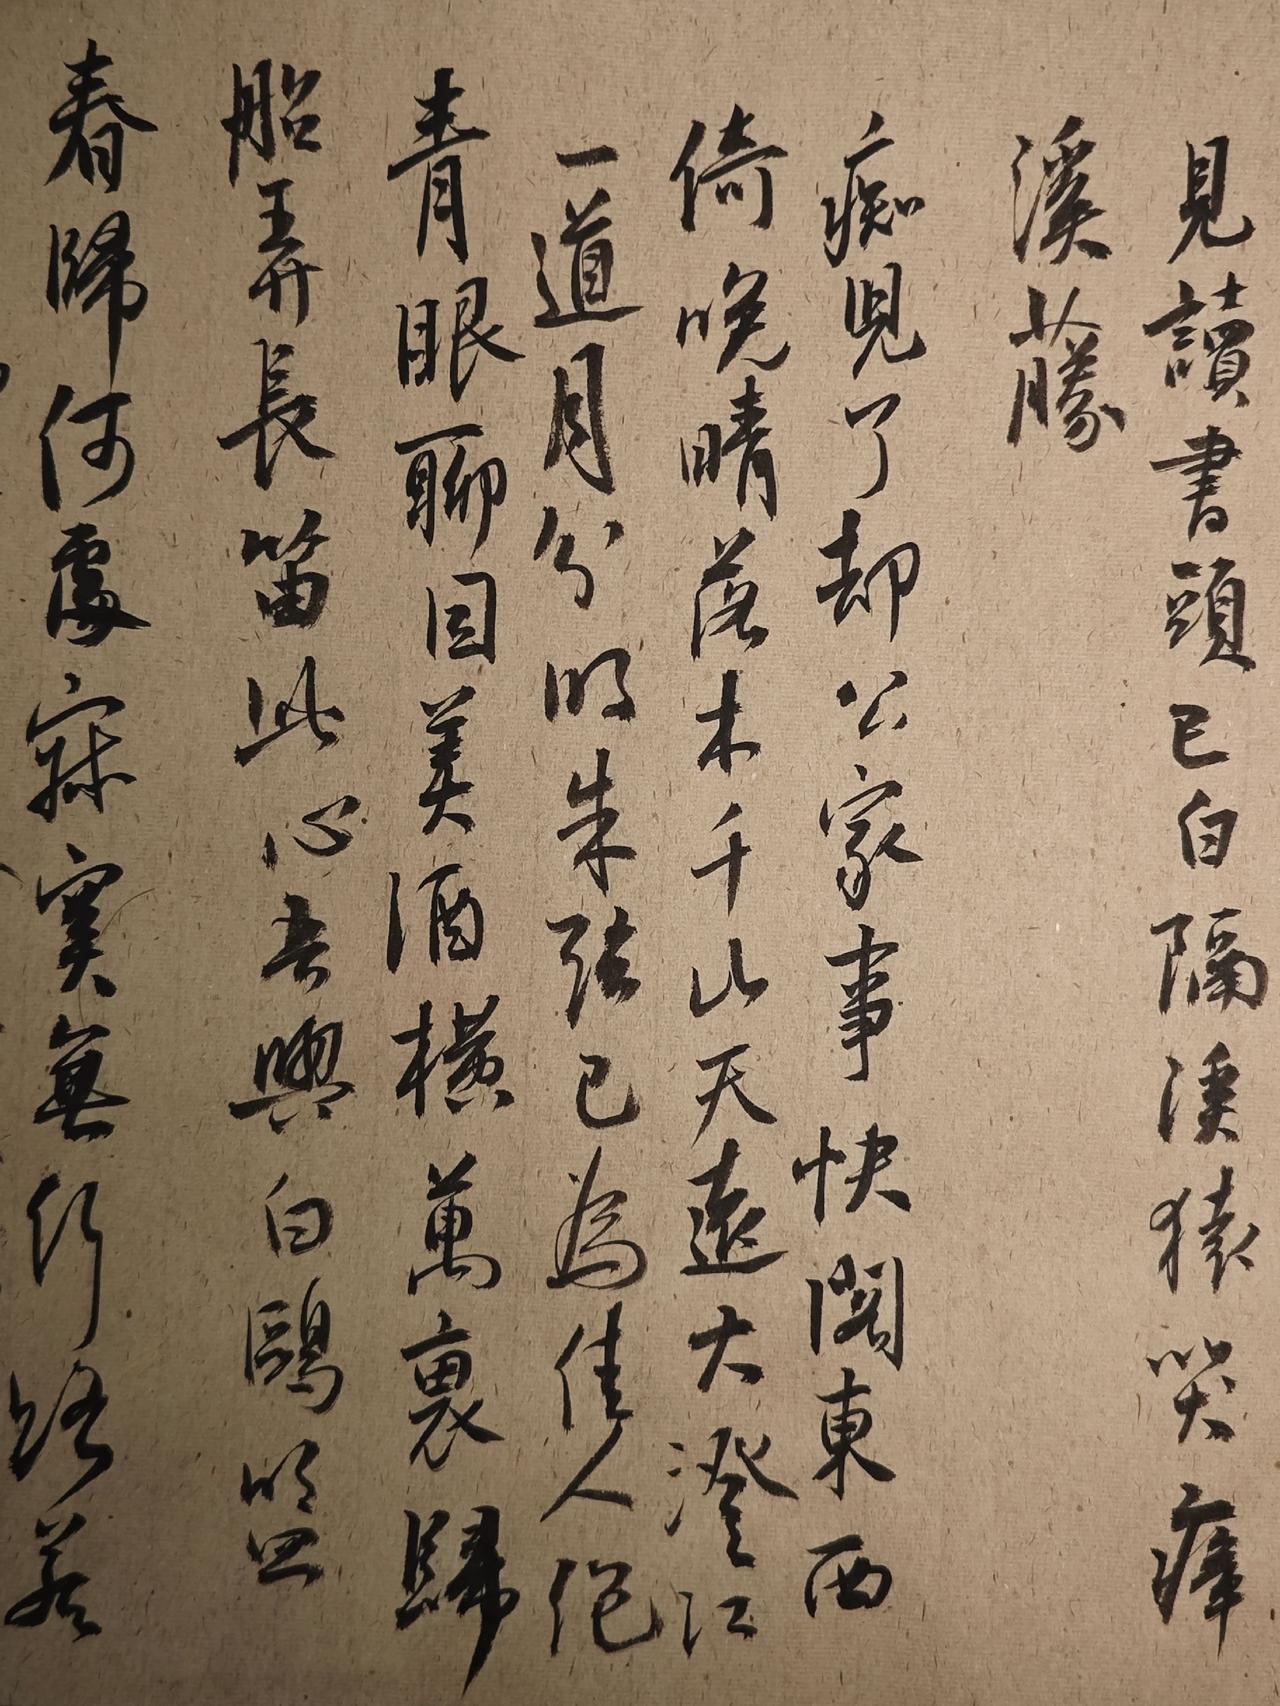 見讀書頭已白隔溪猿哭瘴
溪藤
痴兒了却公家事快閣東西
倚晚晴落木千山天遠大澄江
一道月分明朱弦已為佳人絕
青眼聊因美酒橫萬裏歸
船弄長笛此心吾與白鷗盟
春歸何處寂寞無行路若